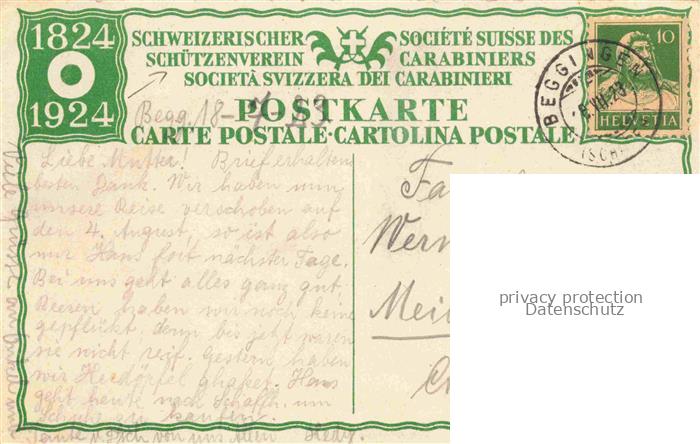 1824
1924
SCHWEIZERISCHER
SCHÜTZENVEREIN
SOCIÉTÉ SUISSE DES
CARABINIERS
SOCIETÀ SVIZZERA DEI CARABINIERI
POSTKARTE
CARTE POSTALE · CARTOLINA POSTALE
10
HELVETIA
BEGGINGEN
Begg. 18
Liebe Mutter! Brief erhalten
besten Dank. Wir haben nun
unsere Reise verschoben auf
den 4. August, so ist also
nur Hans fort nächster Tage.
Bei uns geht alles ganz gut
Beeren haben wir noch keine
gepflückt denn bis jetzt waren
sie nicht reif. Gestern haben
wir Herdöpfel ghaket. Hans
geht heute nach Schaffh. um
Schuhe zu kaufen.
von uns allen Hedy.
Fa
Wer
Mei
privacy protection
Datenschutz